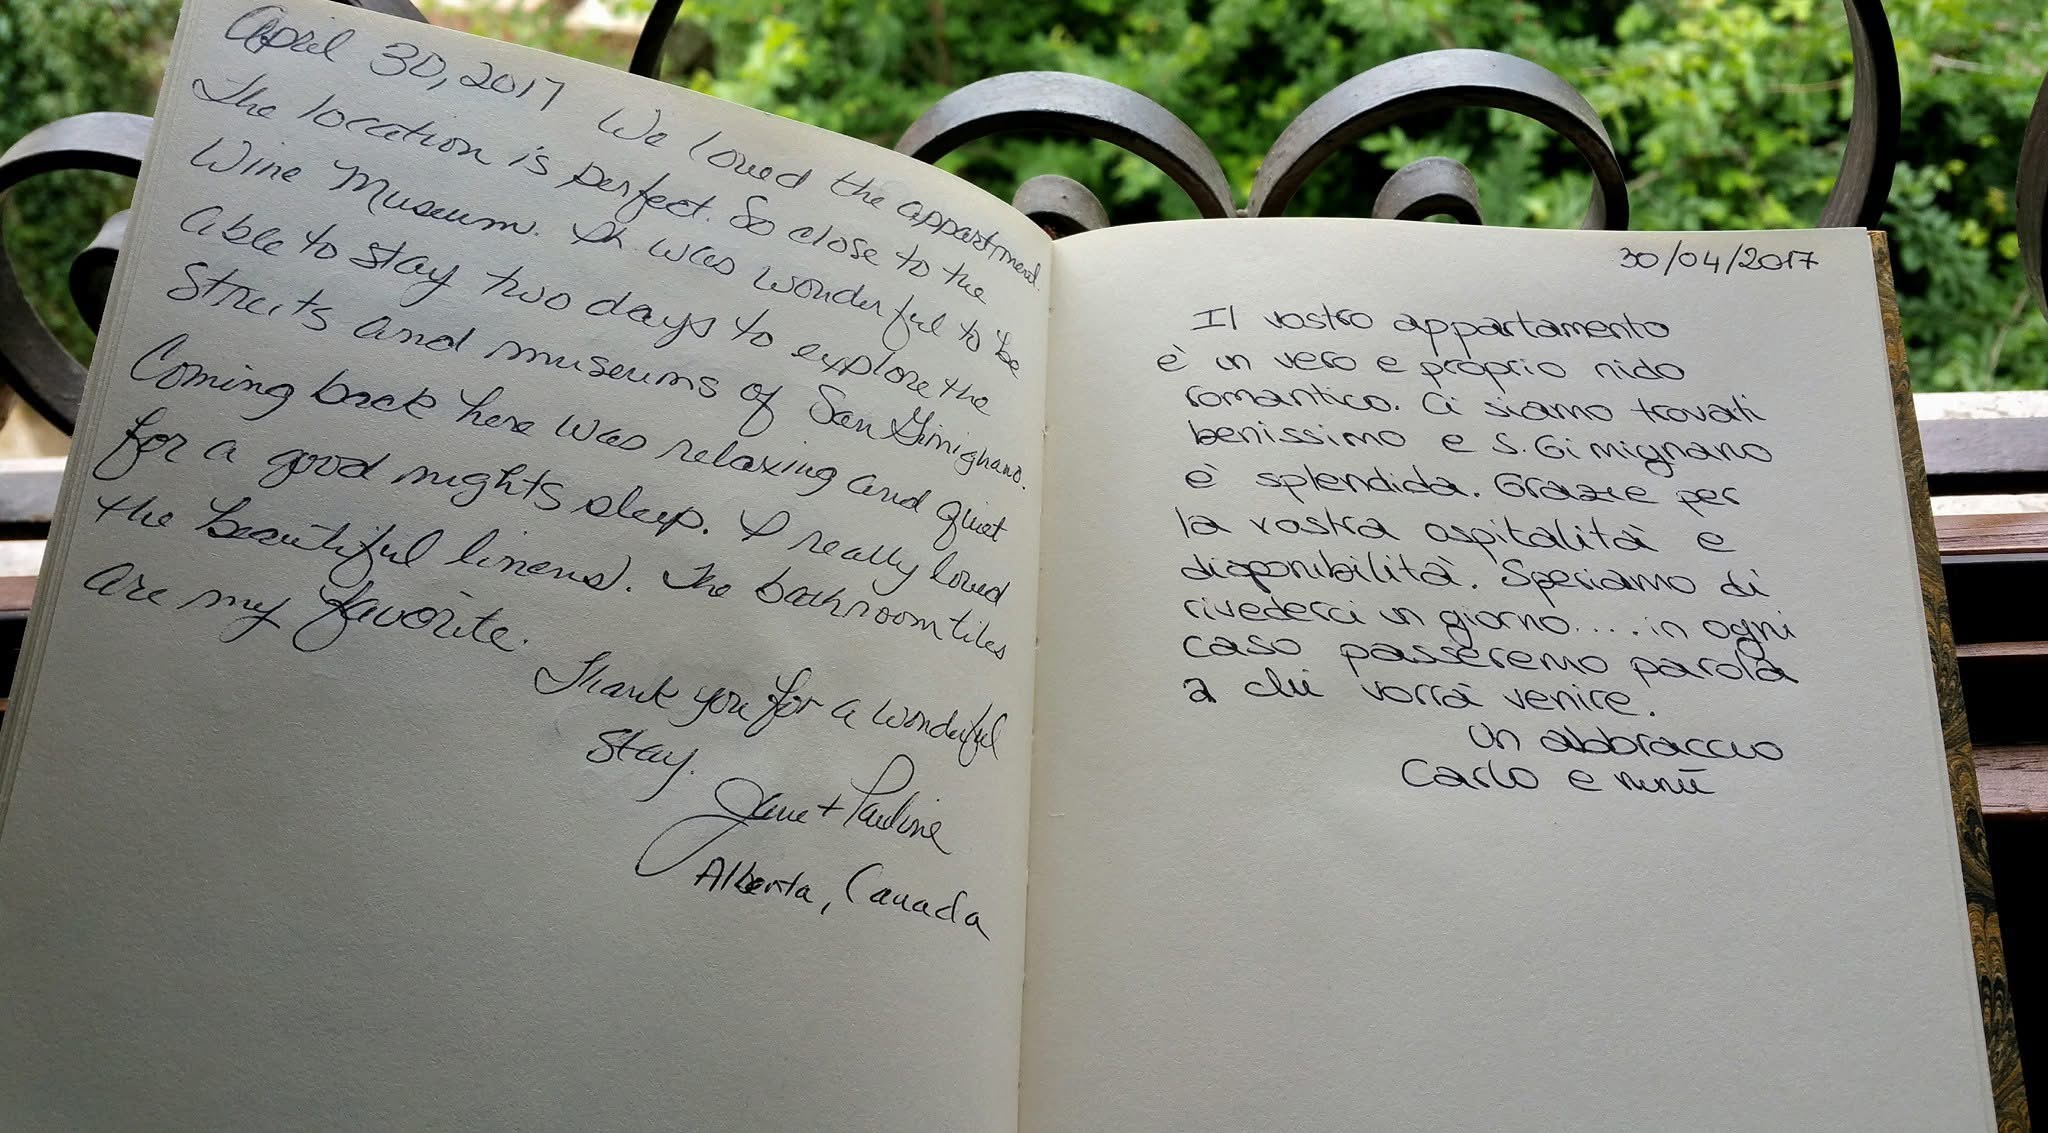 April 30, 2017 We loved the appartment.
The location is perfect. So close to the
Wine Museum. It was wonderful to be
able to stay two days to explore the
streets and museums of San Gimignano.
Coming back here was relaxing and quiet
for a good nights sleep. I really loved
the beautiful linens). The bathroom tiles
are my favorite.
Thank you for a wonderful
stay.
Jane + Pauline
Alberta, Canada
30/04/2017
Il vostro appartamento
è un vero e proprio nido
romantico. Ci siamo trovati
benissimo e S. Gimignano
è splendida. Grazie per
la vostra ospitalità e
disponibilità. Speriamo di
rivederci un giorno.... in ogni
caso passeremo parola
a chi vorrà venire.
Un abbraccio
Carlo e